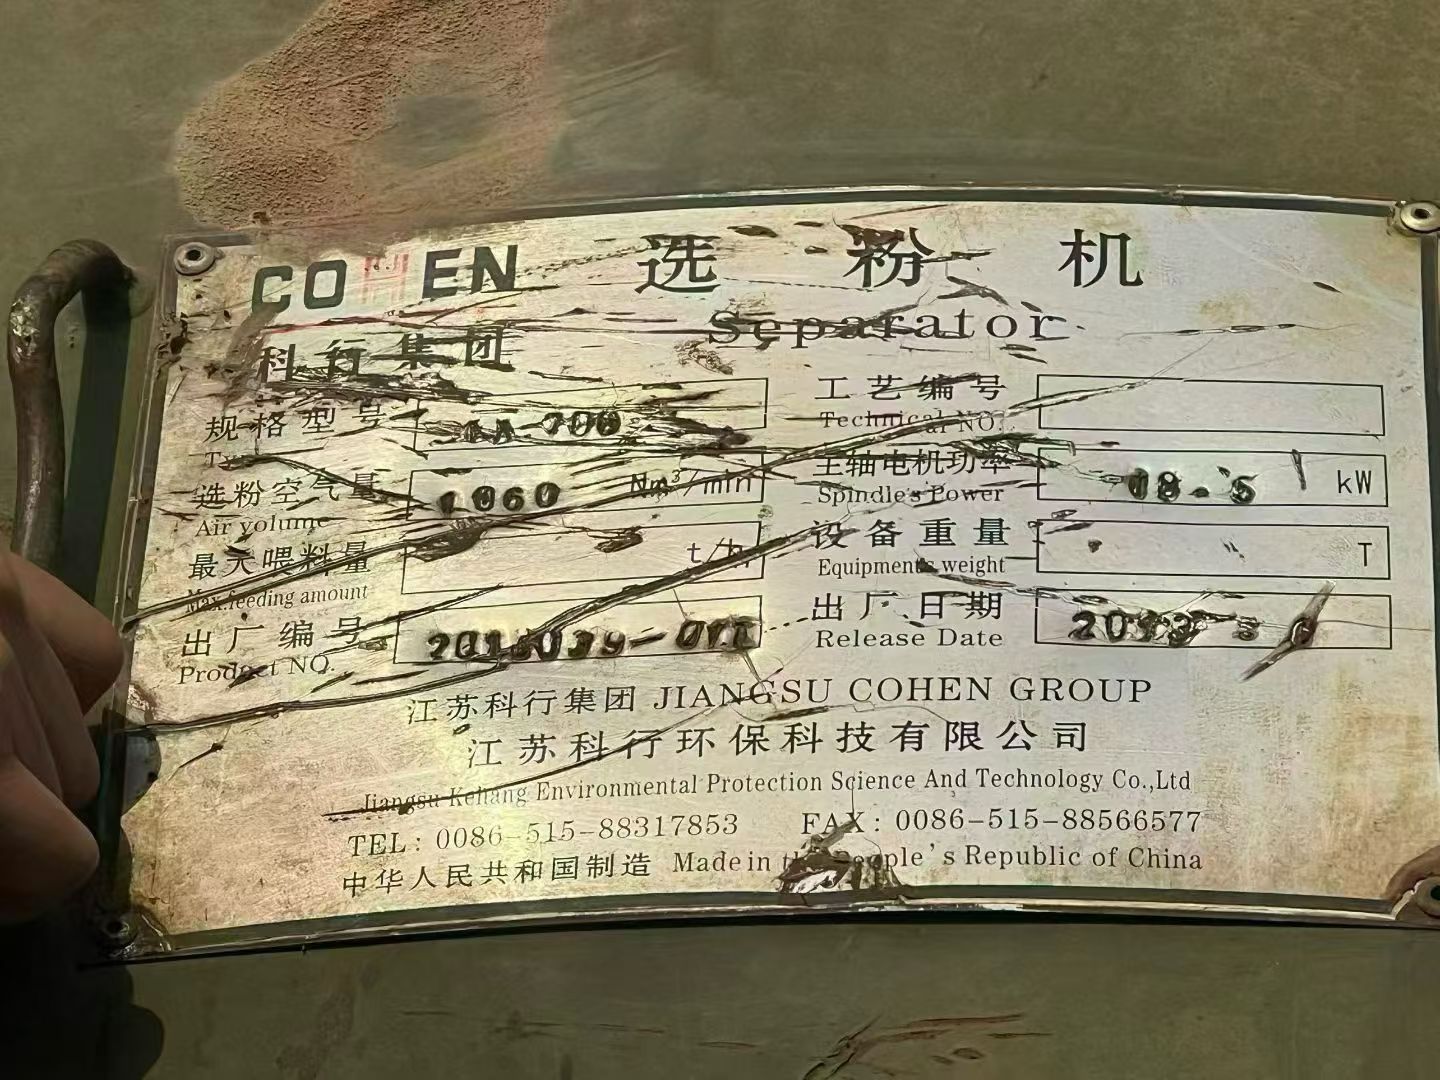 COHEN 选粉机
Separator
科行集团
规格型号 工艺编号
Technical NO.
选粉空气量 1060 Nm³/min 主轴电机功率 18.5 kW
Air volume Spindle's Power
最大喂料量 t/h 设备重量 T
Max.feeding amount Equipment's weight
出厂编号 出厂日期
Product NO. Release Date
江苏科行集团 JIANGSU COHEN GROUP
江苏科行环保科技有限公司
Jiangsu Kehang Environmental Protection Science And Technology Co.,Ltd
TEL: 0086-515-88317853 FAX: 0086-515-88566577
中华人民共和国制造 Made in the People's Republic of China